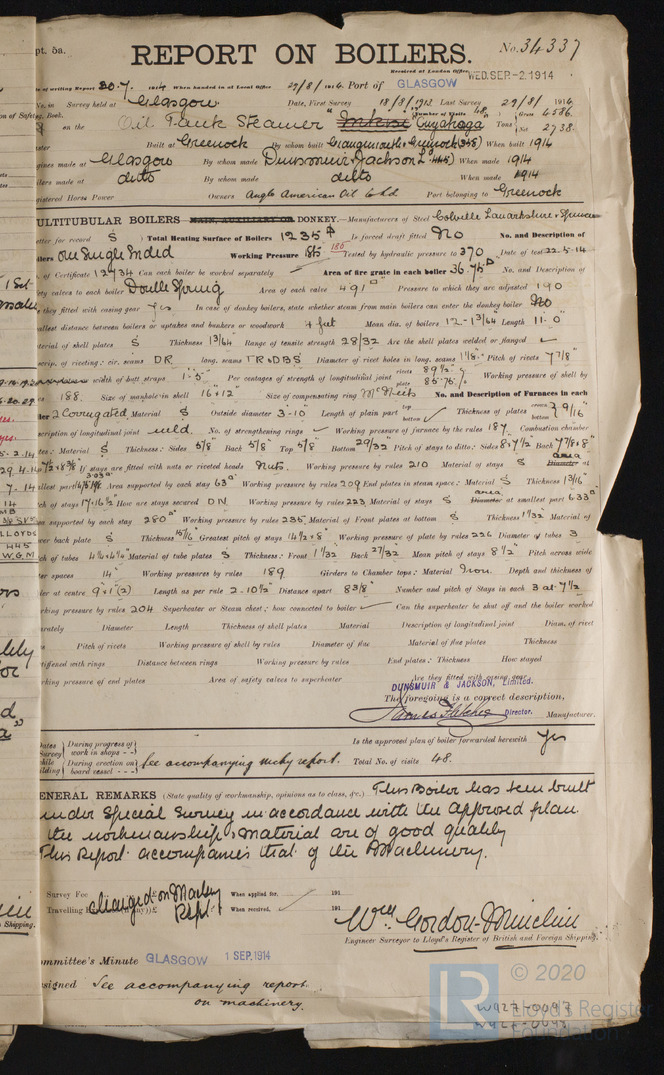 pt. 5a.
REPORT ON BOILERS.
No. 34337
Received at London Office WED. SEP. -2 1914
of writing Report 20.7. 1914 When handed in at Local Office 29/8/1914. Port of GLASGOW
No. in Survey held at Glasgow Date, First Survey 18/8/1913 Last Survey 29/8/1914
on the Oil Tank Steamer "Cuyahoga" Number of Visits 48 Tons Gross 4586 Net 2738
Built at Greenock By whom built When built 1914
made at Glasgow By whom made Dunsmuir & Jackson Ld (445) When made 1914
made at ditto By whom made ditto When made 1914
Registered Horse Power Owners Anglo American Oil Co Ltd. Port belonging to Greenock
MULTITUBULAR BOILERS MAIN, AUXILIARY OR DONKEY.—Manufacturers of Steel Colville Lanarkshire &
for record S Total Heating Surface of Boilers 1235 Is forced draft fitted No No. and Description of
One Single Ended Working Pressure 180 Tested by hydraulic pressure to 370 Date of test 22.5.14
of Certificate 12734 Can each boiler be worked separately Area of fire grate in each boiler 36.75 No. and Description of
valves to each boiler Double Spring Area of each valve 4.91 Pressure to which they are adjusted 190
they fitted with easing gear yes In case of donkey boilers, state whether steam from main boilers can enter the donkey boiler No
smallest distance between boilers or uptakes and bunkers or woodwork 4 feet Mean dia. of boilers 12-1 3/64 Length 11.0"
material of shell plates S Thickness 1 3/64 Range of tensile strength 28/32 Are the shell plates welded or flanged ✓
of riveting: cir. seams DR. long. seams TR.DBS Diameter of rivet holes in long. seams 1 1/8 Pitch of rivets 7 7/8"
width of butt straps 1.5" Per centages of strength of longitudinal joint rivets 89 1/2 plate 85.75 Working pressure of shell by
188 Size of manhole in shell 16" x 12" Size of compensating ring McNeils No. and Description of Furnaces in each
2 Corrugated Material S Outside diameter 3-10 Length of plain part top bottom Thickness of plates crown bottom 9/16"
description of longitudinal joint weld. No. of strengthening rings ✓ Working pressure of furnace by the rules 187 Combustion chamber
Material S Thickness: Sides 5/8" Back 5/8" Top 5/8" Bottom 29/32" Pitch of stays to ditto: Sides 8 x 7 1/2 Back 7 7/8 x 8"
If stays are fitted with nuts or riveted heads Nuts. Working pressure by rules 210 Material of stays S area Diameter at
smallest part Area supported by each stay 63 Working pressure by rules 209 End plates in steam space: Material S Thickness 1 3/16"
of stays 17 x 16 1/2 How are stays secured DN. Working pressure by rules 223 Material of stays S area Diameter at smallest part 6.33
supported by each stay 280 Working pressure by rules 235 Material of Front plates at bottom S Thickness 1 1/32 Material of
back plate S Thickness 15/16" Greatest pitch of stays 14 1/2 x 8" Working pressure of plate by rules 226 Diameter of tubes 3
of tubes 4 1/4 x 4 1/4" Material of tube plates S Thickness: Front 1 1/32 Back 27/32 Mean pitch of stays 8 1/2 Pitch across wide
spaces 14" Working pressures by rules 189 Girders to Chamber tops: Material Iron Depth and thickness of
at centre 9 x 1 (2) Length as per rule 2-10 1/2" Distance apart 8 3/8" Number and pitch of Stays in each 3 at 7 1/2
Working pressure by rules 204 Superheater or Steam chest; how connected to boiler ✓ Can the superheater be shut off and the boiler worked
separately Diameter Length Thickness of shell plates Material Description of longitudinal joint Diam. of rivet
Pitch of rivets Working pressure of shell by rules Diameter of flue Material of flue plates Thickness
stiffened with rings Distance between rings Working pressure by rules End plates: Thickness How stayed
Working pressure of end plates Area of safety valves to superheater Are they fitted with easing gear
DUNSMUIR & JACKSON, Limited.
The foregoing is a correct description,
James Fletcher Director. Manufacturer.
Dates of Survey while building During progress of work in shops - - During erection on board vessel - - - See accompanying mchy report.
Is the approved plan of boiler forwarded herewith Yes
Total No. of visits 48.
GENERAL REMARKS (State quality of workmanship, opinions as to class, &c.) This Boiler has been built
under Special Survey in accordance with the approved plan.
the workmanship & material are of good quality
This Report accompanies that of the Machinery.
Survey Fee charged on Machy Rept. When applied for, 191
Travelling When received, 191
Wm Gordon-Minchin
Engineer Surveyor to Lloyd's Register of British and Foreign Shipping.
Committee's Minute GLASGOW 1 SEP. 1914
Assigned See accompanying report
on machinery.
LR © 2020
Lloyd's Register
Foundation
W927-0047